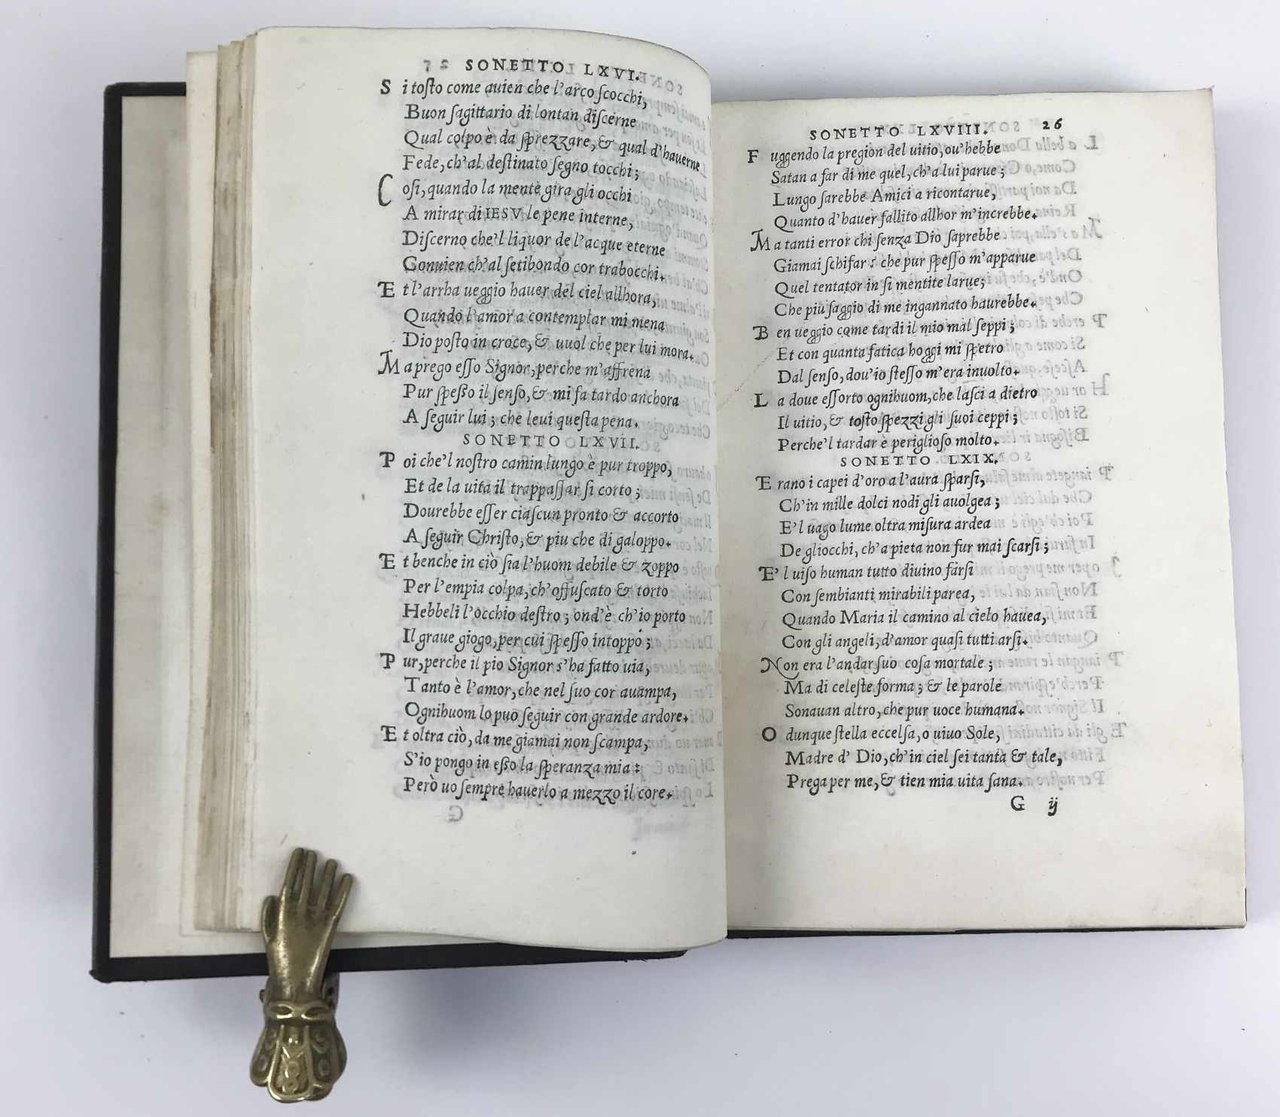 SONETTO LXVI.
Si tosto come auien che l'arco scocchi,
Buon sagittario di lontan discerne
Qual colpo è da sprezzare, & qual d'hauerne
Fede, ch'al destinato segno tocchi;
Cosi, quando la mente gira gli occhi
A mirar di IESV le pene interne,
Discerno che'l liquor de l'acque eterne
Conuien ch'al setibondo cor trabocchi.
Et l'arrha ueggio hauer del ciel allhora,
Quando l'amor a contemplar mi mena
Dio posto in croce, & uuol che per lui mora.
Ma prego esso Signor, perche m'affrena
Pur spesso il senso, & mi fa tardo anchora
A seguir lui; che leui questa pena.
SONETTO LXVII.
Poi che'l nostro camin lungo è pur troppo,
Et de la uita il trappassar si corto;
Dourebbe esser ciascun pronto & accorto
A seguir Christo, & piu che di galoppo.
Et benche in ciò sia l'huom debile & zoppo
Per l'empia colpa, ch'offuscato & torto
Hebbeli l'occhio destro; ond'è ch'io porto
Il graue giogo, per cui spesso intoppo;
Pur, perche il pio Signor s'ha fatto uia,
Tanto è l'amor, che nel suo cor auampa,
Ognihuom lo può seguir con grande ardore.
Et oltra ciò, da me giamai non scampa,
S'io pongo in esso la speranza mia:
Però uo sempre hauerlo a mezzo il core.
26
SONETTO LXVIII.
Fuggendo la pregion del uitio, ou'hebbe
Satan a far di me quel, ch'a lui parue;
Lungo sarebbe Amici a ricontarue,
Quanto d'hauer fallito allhor m'increbbe.
Ma tanti error chi senza Dio saprebbe
Giamai schifar? che pur spesso m'apparue
Quel tentator in si mentite larue;
Che più saggio di me ingannato haurebbe.
Ben ueggio come tardi il mio mal seppi;
Et con quanta fatica hoggi mi spetro
Dal senso, dou'io stesso m'era inuolto.
La doue essorto ognihuom, che lasci a dietro
Il uitio, & tosto spezzi gli suoi ceppi;
Perche'l tardar è periglioso molto.
SONETTO LXIX.
Erano i capei d'oro a l'aura sparsi,
Ch'in mille dolci nodi gli auolgea;
E'l uago lume oltra misura ardea
De gliocchi, ch'a pieta non fur mai scarsi;
E'l uiso human tutto diuino farsi
Con sembianti mirabili parea,
Quando Maria il camino al cielo hauea,
Con gli angeli, d'amor quasi tutti arsi.
Non era l'andar suo cosa mortale;
Ma di celeste forma; & le parole
Sonauan altro, che pur uoce humana.
O dunque stella eccelsa, o uiuo Sole,
Madre d' Dio, ch'in ciel sei tanta & tale,
Prega per me, & tien mia uita sana.
G ij